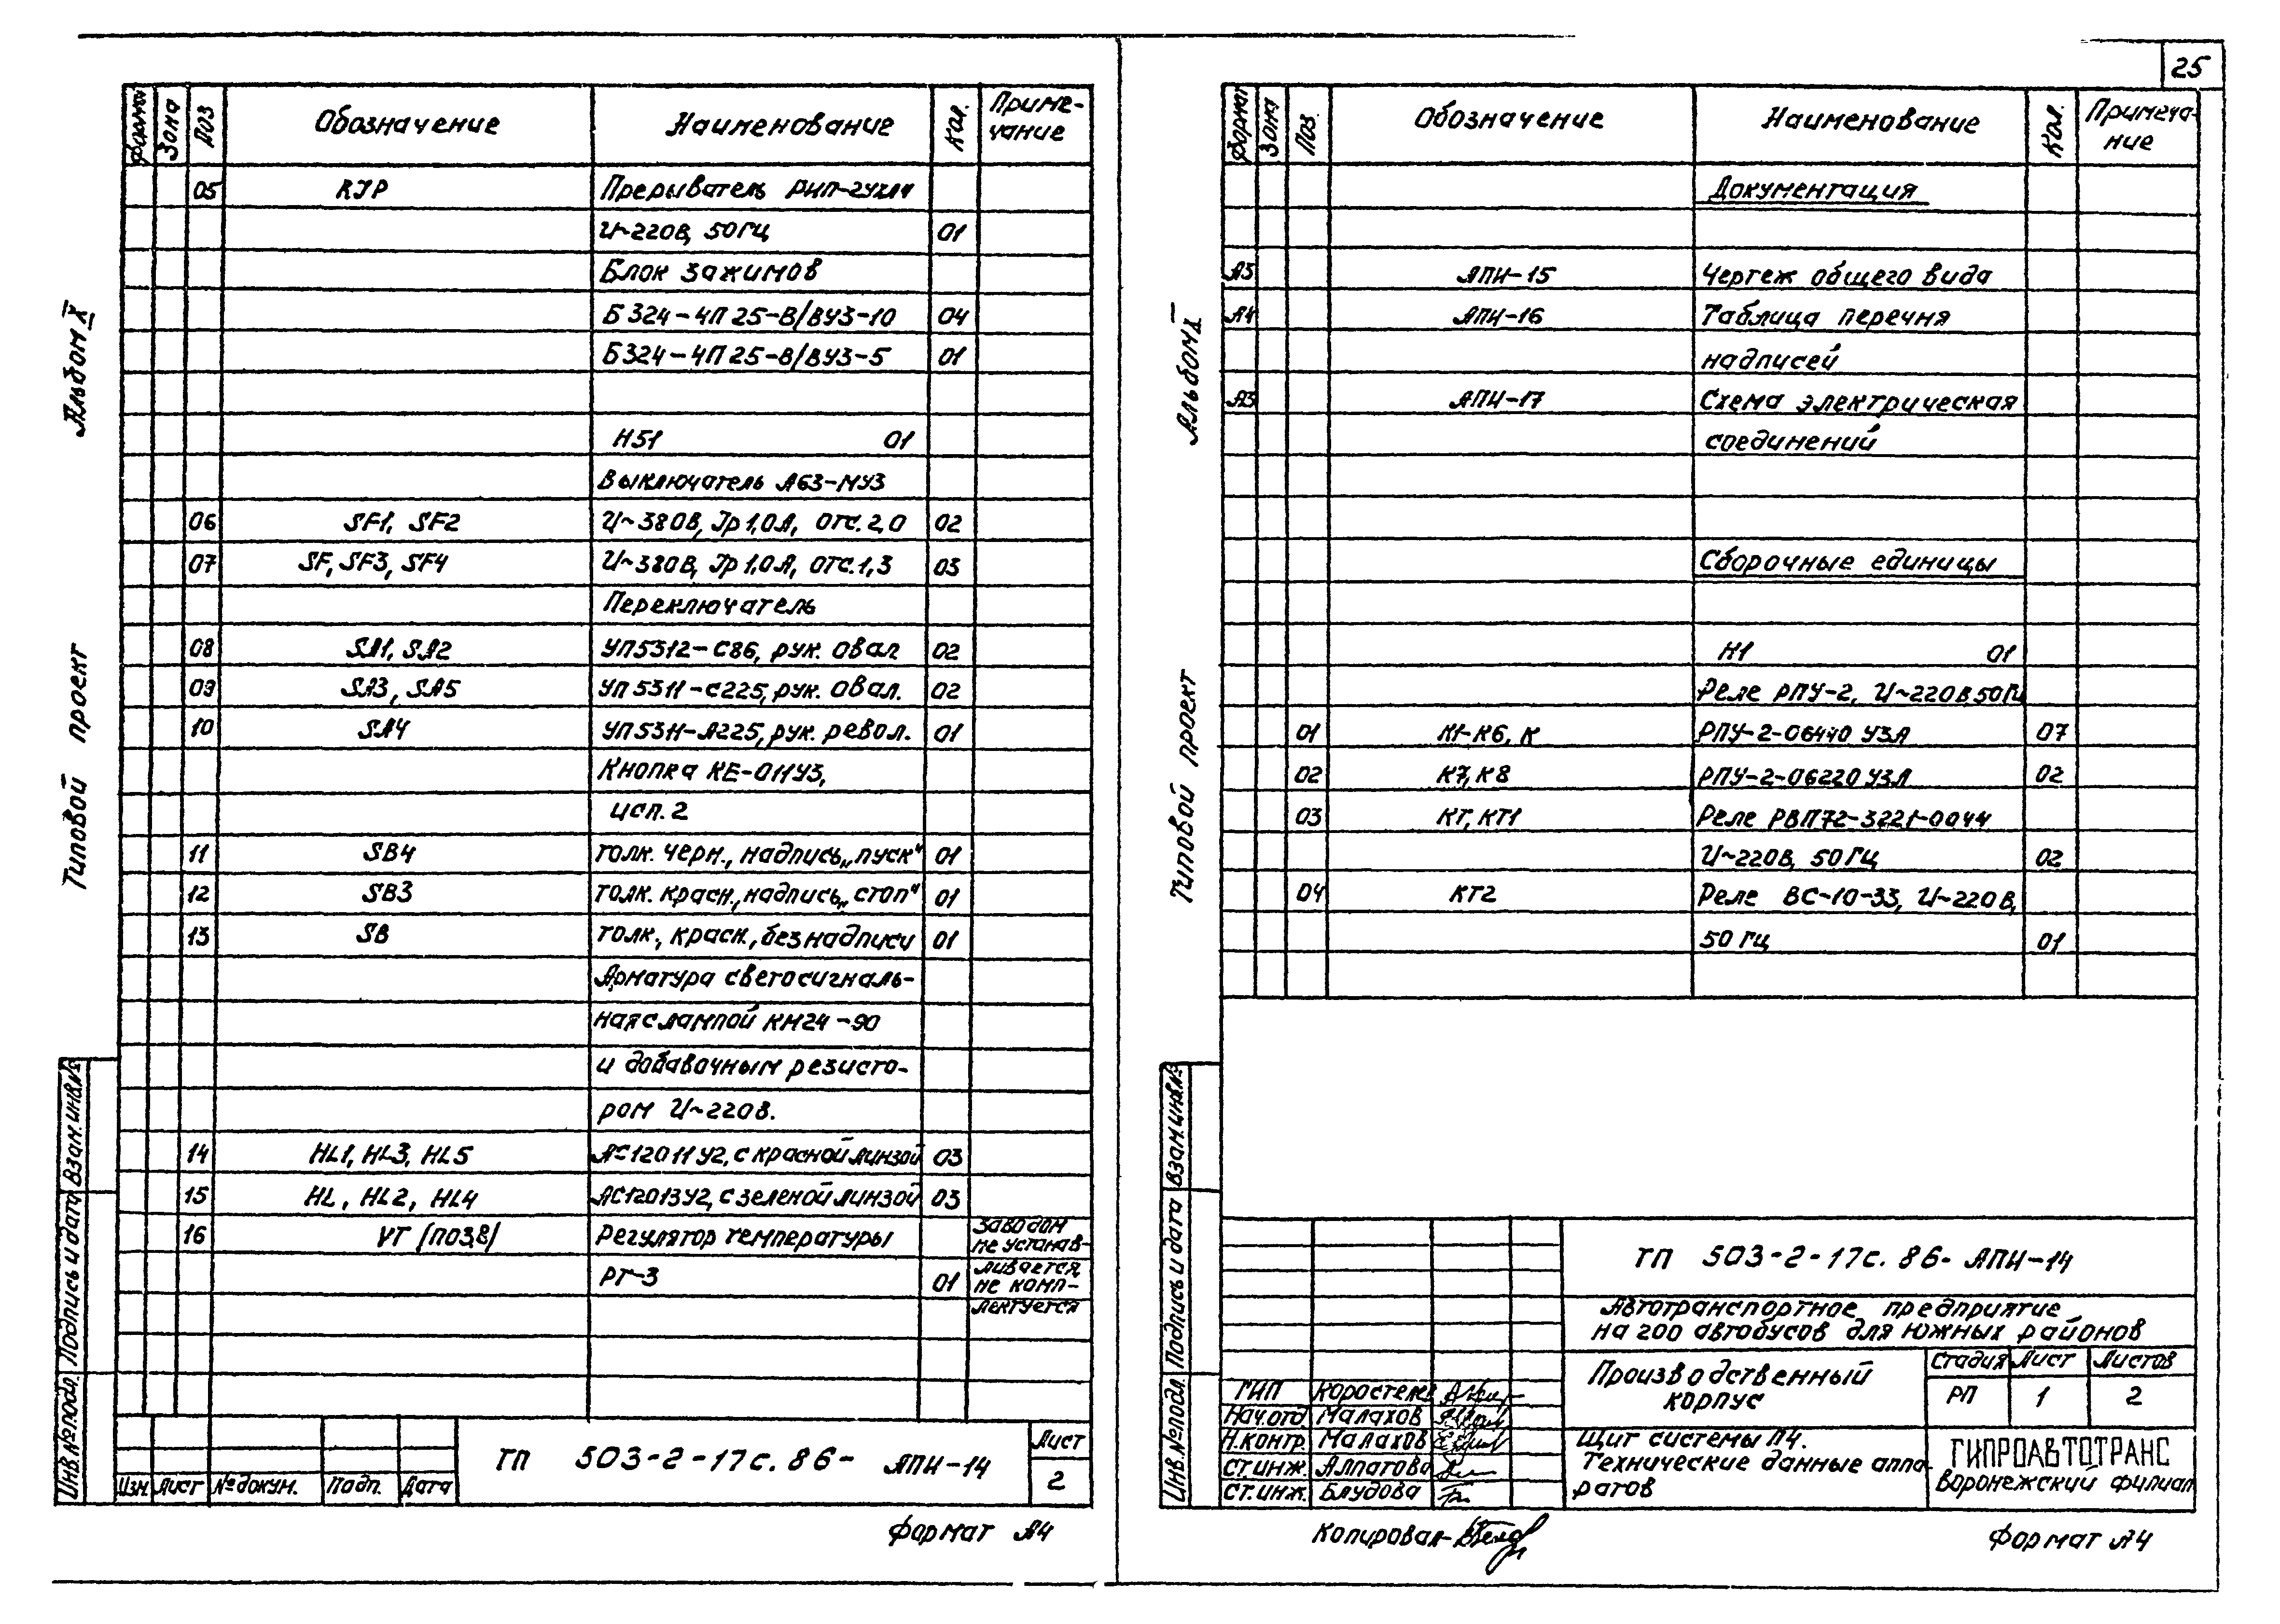 25
Альбом X
Типовой проект
Формат Зона Поз Обозначение Наименование Кол. Приме-
чание
05 KJP Прерыватель РИП-2УХЛ4
U~220В, 50Гц 01
Блок зажимов
Б324-4П25-В/ВУ3-10 04
Б324-4П25-В/ВУ3-5 01
Н51 01
Выключатель А63-МУ3
06 SF1, SF2 U~380В, Jр1,0А, Отс. 2,0 02
07 SF, SF3, SF4 U~380В, Jр1,0А, Отс.1,3 03
Переключатель
08 SA1, SA2 УП5312-С86, рук. овал 02
09 SA3, SA5 УП5311-С225, рук. овал. 02
10 SA4 УП5311-А225, рук. револ. 01
Кнопка КЕ-011У3,
исп. 2
11 SB4 толк. черн., надпись „пуск" 01
12 SB3 толк. красн., надпись „стоп" 01
13 SB толк., красн., без надписи 01
Арматура светосигналь-
ная с лампой КМ24-90
и добавочным резисто-
ром U~220В.
14 HL1, HL3, HL5 АС12011У2, с красной линзой 03
15 HL, HL2, HL4 АС12013У2, с зеленой линзой 03
16 VT /поз.8/ Регулятор температуры
РТ-3 01
заводом
не устанав-
ливается,
не комп-
лектуется
Инв.№подл. Подпись и дата Взам.инв.№
Изм. Лист №докум. Подп. Дата
ТП 503-2-17с.86- АПИ-14
Лист
2
Формат А4
Альбом X
Типовой проект
Формат Зона Поз. Обозначение Наименование Кол. Примеча-
ние
Документация
А3 АПИ-15 Чертеж общего вида
А4 АПИ-16 Таблица перечня
надписей
А3 АПИ-17 Схема электрическая
соединений
Сборочные единицы
Н1 01
Реле РПУ-2, U~220В 50Гц
01 К1-К6, К РПУ-2-06440 У3А 07
02 К7, К8 РПУ-2-06220 У3А 02
03 КТ, КТ1 Реле РВП72-3221-0044
U~220В, 50Гц 02
04 КТ2 Реле ВС-10-33, U~220В,
50 Гц 01
Инв.№подл. Подпись и дата Взам.инв.№
ТП 503-2-17с.86- АПИ-14
Автотранспортное предприятие
на 200 автобусов для южных районов
Производственный
корпус
Стадия Лист Листов
РП 1 2
ГИП Коростеле
Нач.отд Малахов
Н.контр. Малахов
Ст.инж. Алпатова
Ст.инж. Блудова
Щит системы П4.
Технические данные аппа-
ратов
ГИПРОАВТОТРАНС
Воронежский филиал
Копировал-
Формат А4